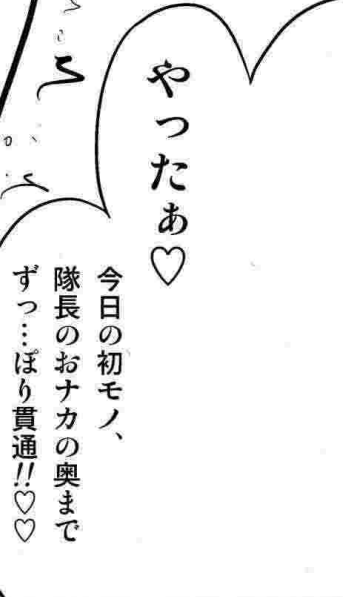 やったぁ♡
今日の初モノ、
隊長のおナカの奥まで
ずっ…ぽり貫通!!♡♡